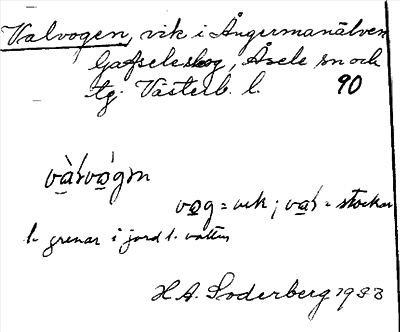 Valvogen, vik i Ångermanälven
Gafseleskog, Åsele sn och
tg. Västerb. l. 90
và̠l̀vo̠gm
vo̠g = vik; va̠l = stockar
l. grenar i jord l. vatten
H.A. Söderberg 1933